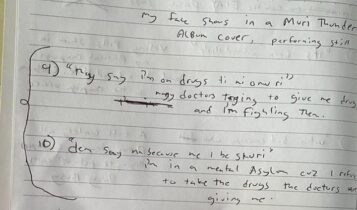 My face shows in a Muri Thunder
Album cover, performing still
9) "They say i'm on drugs ti ni onw ri"
my doctors trying to give me drugs
and i'm fighting them.
10) "dem say
i'm in a mental Asylum cuz I refuse
to take the drugs the doctors
giving me.